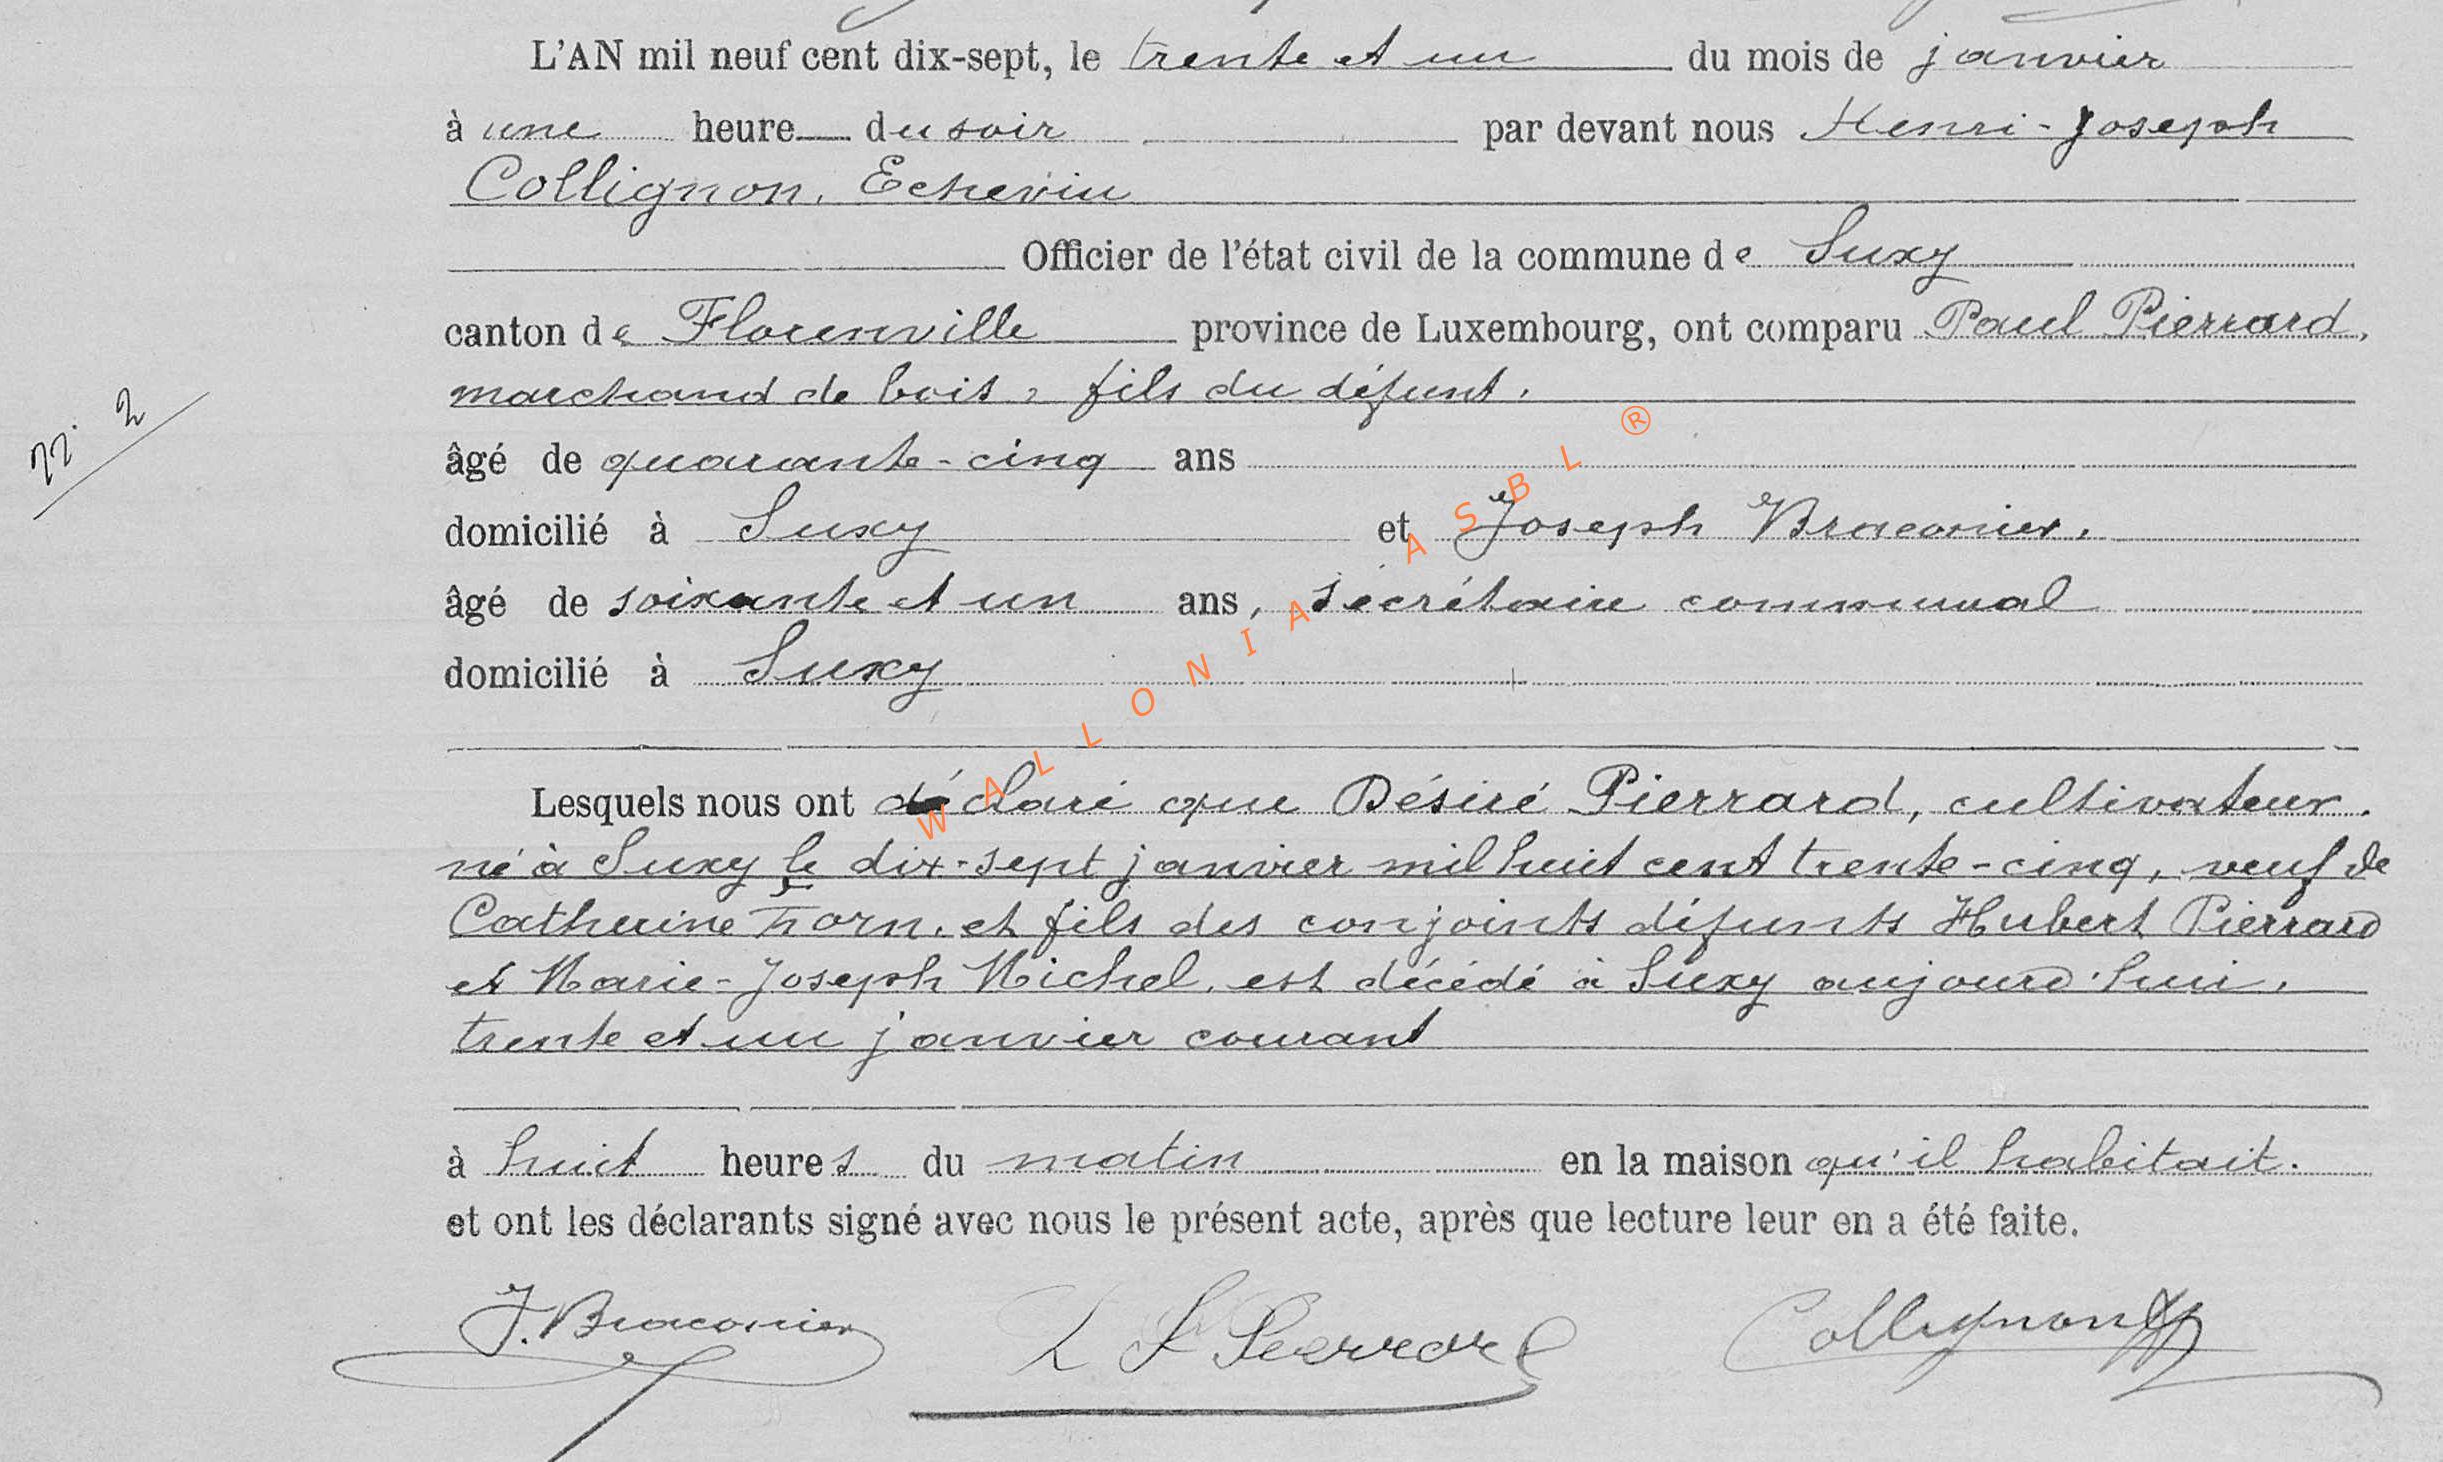 L'AN mil neuf cent dix-sept, le trente et un du mois de janvier
à une heure du soir par devant nous Henri-Joseph
Collignon, Echevin
Officier de l'état civil de la commune de Suxy
canton de Florenville province de Luxembourg, ont comparu Paul Pierrard,
marchand de bois, fils du défunt,
N° 2
âgé de quarante-cinq ans
domicilié à Suxy et Joseph Braconier,
âgé de soixante et un ans, secrétaire communal
domicilié à Suxy
WALLONIA ASBL ®
Lesquels nous ont déclaré que Désiré Pierrard, cultivateur,
né à Suxy le dix-sept janvier mil huit cent trente-cinq, veuf de
Catherine Thorn, et fils des conjoints défunts Hubert Pierrard
et Marie-Joseph Michel, est décédé à Suxy aujourd'hui,
trente et un janvier courant
à huit heures du matin en la maison qu'il habitait.
et ont les déclarants signé avec nous le présent acte, après que lecture leur en a été faite.
J. Braconier Pierrard Collignon